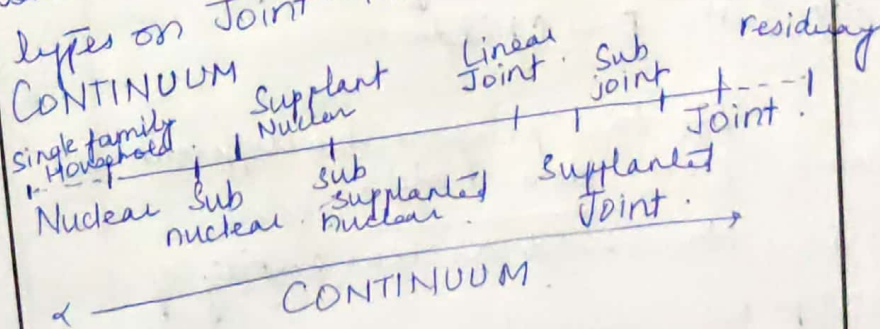 types on Joint
CONTINUUM
Single family
Household
Supplant
Nuclear
Linear
Joint.
Sub
joint
residuary
Joint.
Nuclear
Sub
nuclear.
Sub
supplanted
nuclear.
Supplanted
Joint.
CONTINUUM